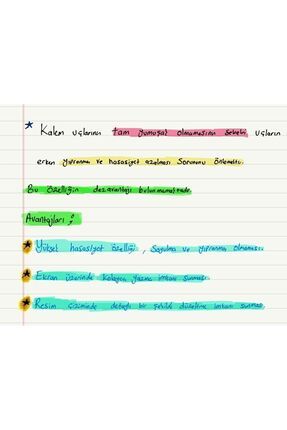 * Kalem uçlarının tam yumuşak olmamasının sebebi uçların
erken yıpranma ve hassasiyet azalması sorununu önlemektir.
Bu özelliğin dezavantajı bulunmamaktadır.
Avantajları ;
* Yüksek hassasiyet özelliği, Soyulma ve yıpranma olmaması.
* Ekran üzerinde kolayca yazma imkanı sunması.
* Resim çiziminde detaylı bir şekilde düzeltme imkanı sunması.